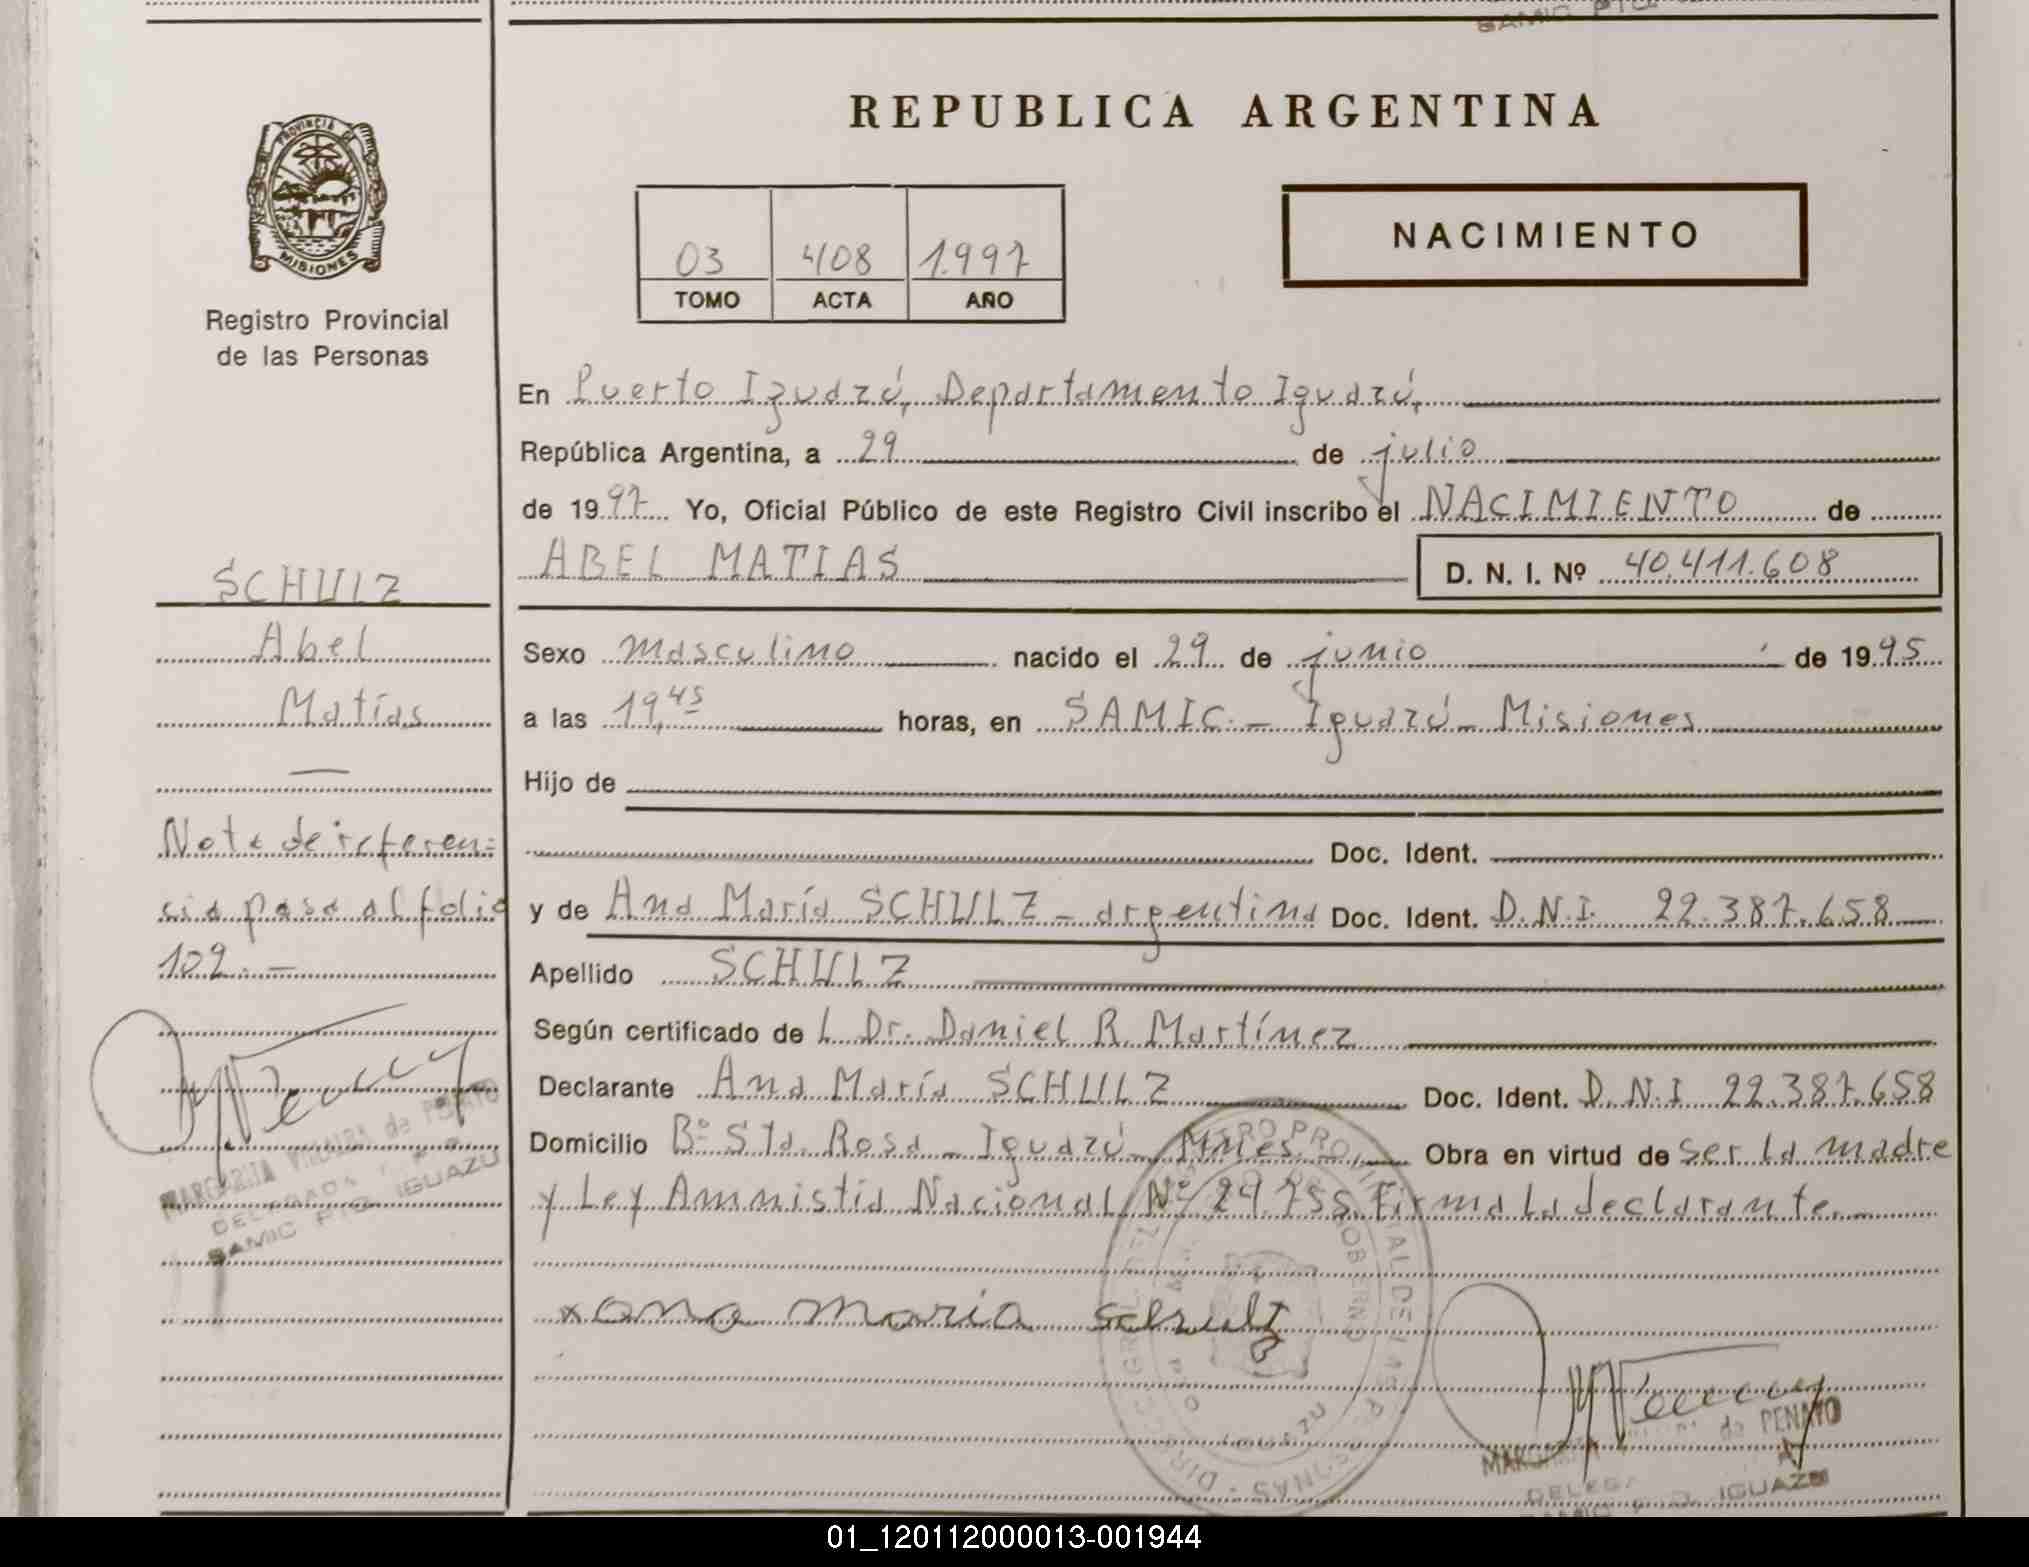 SAMIC PTO
REPUBLICA ARGENTINA
PROVINCIA DE
MISIONES
Registro Provincial
de las Personas
03 408 1.997
TOMO ACTA AÑO
NACIMIENTO
En Puerto Iguazú, Departamento Iguazú,
República Argentina, a 29 de julio
de 1997 Yo, Oficial Público de este Registro Civil inscribo el NACIMIENTO de
ABEL MATIAS D. N. I. Nº 40.411.608
Sexo masculino nacido el 29 de junio de 1995
a las 19,45 horas, en SAMIC.- Iguazú - Misiones
Hijo de
Doc. Ident.
y de Ana María SCHULZ - argentina Doc. Ident. D.N.I. 22.387.658
Apellido SCHULZ
Según certificado de L Dr. Daniel R. Martínez
Declarante Ana María SCHULZ Doc. Ident. D.N.I 22.387.658
Domicilio Bº Sta. Rosa - Iguazú - Mnes. Obra en virtud de ser la madre
y Ley Amnistía Nacional Nº 24.755. Firma la declarante.-
x ana maria Schulz
SCHULZ
Abel
Matías
Nota de referen=
cia pasa al folio
102.-
MARGARITA de PENAYO
DELEGADA
SAMIC PTO. IGUAZU
MARGARITA de PENAYO
DELEGA
IGUAZU
01_120112000013-001944